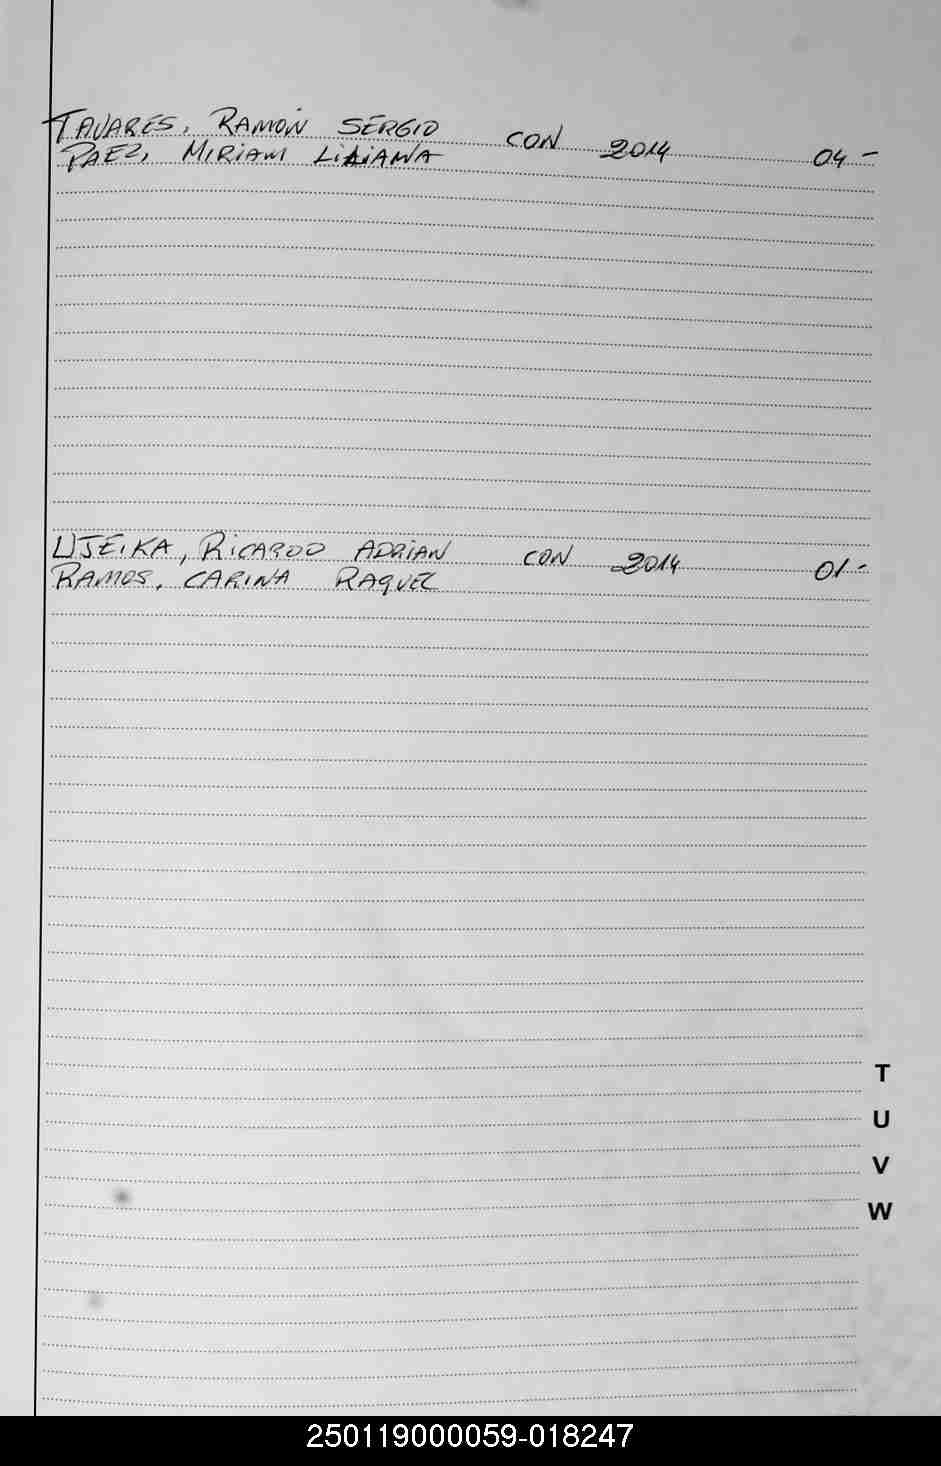 TAVARES, RAMÓN SERGIO CON 2014 04 -
PAEZ, MIRIAM LILIANA
UJEIKA, RICARDO ADRIAN CON 2014 01 -
RAMOS, CARINA RAQUEL
T
U
V
W
250119000059-018247